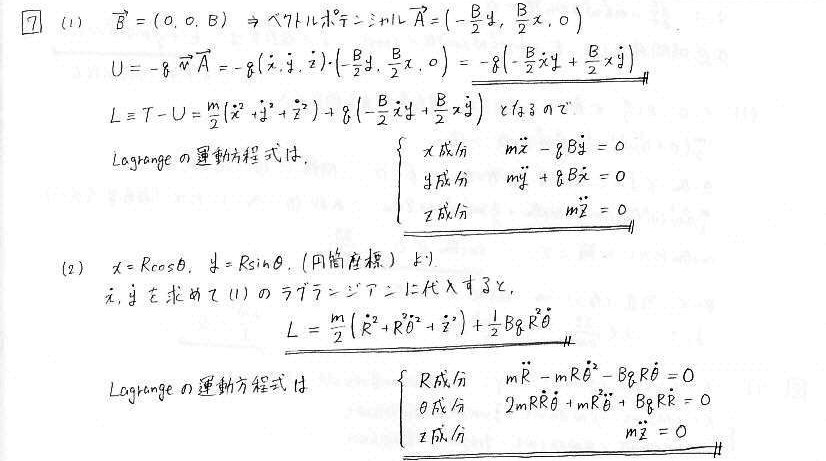 7 (1) B⃗ = (0, 0, B) ⇒ ベクトルポテンシャル A⃗ = (-B/2 y, B/2 x, 0)
U = -q v⃗ A⃗ = -q(ẋ, ẏ, ż)·(-B/2 y, B/2 x, 0) = -q(-B/2 ẋy + B/2 xẏ)
L ≡ T - U = m/2 (ẋ² + ẏ² + ż²) + q(-B/2 ẋy + B/2 xẏ) となるので
Lagrangeの運動方程式は, { x成分 mẍ - qBẏ = 0
y成分 mÿ + qBẋ = 0
z成分 mz̈ = 0
(2) x = Rcosθ, y = Rsinθ, (円筒座標) より
ẋ, ẏ を求めて(1)のラグランジアンに代入すると,
L = m/2 (Ṙ² + R²θ̇² + ż²) + 1/2 BqR²θ̇
Lagrangeの運動方程式は { R成分 mR̈ - mRθ̇² - BqRθ̇ = 0
θ成分 2mRṘθ̇ + mR²θ̈ + BqRṘ = 0
z成分 mz̈ = 0